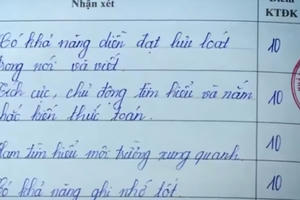 Nhận xét
KTĐK
Có khả năng diễn đạt lưu loát
trong nói và viết.
10
Tích cực, chủ động tìm hiểu và nắm
chắc kiến thức toán.
10
Ham tìm hiểu môi trường xung quanh.
10
Có khả năng ghi nhớ tốt
10